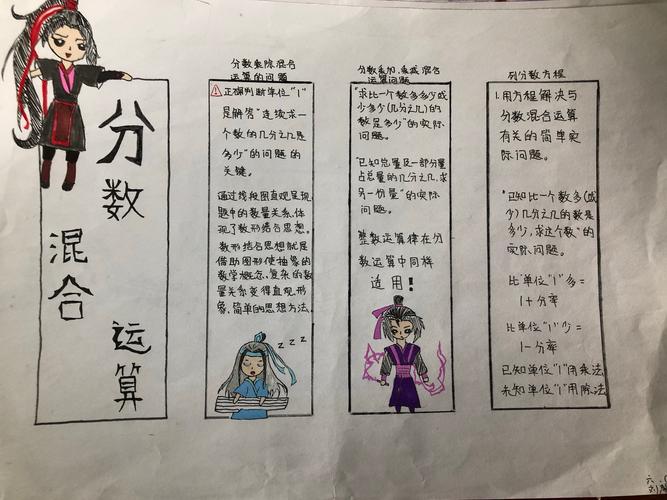 分数
混合
运算
分数乘除混合
运算的问题
正确判断单位"1"
是解答"连续求一
个数的几分之几是
多少"的问题的
关键。
通过线段图直观呈现
题中的数量关系,体
现了数形结合思想。
数形结合思想就是
借助图形使抽象的
数学概念,复杂的数
量关系变得直观,形
象,简单的思想方法。
zzz
分数乘加、乘减混合
运算问题
"求比一个数多多少或
少多少(几分之几)的
数是多少"的实际
问题。
"已知总量及一部分量
占总量的几分之几,求
另一份量"的实际
问题。
整数运算律在分
数运算中同样
适用!
列分数方程
1.用方程解决与
分数混合运算
有关的简单实
际问题。
"已知比一个数多(或
少)几分之几的数是
多少,求这个数"的
实际问题。
比单位"1"多=
1+分率
比单位"1"少=
1-分率
已知单位"1"用乘法
未知单位"1"用除法